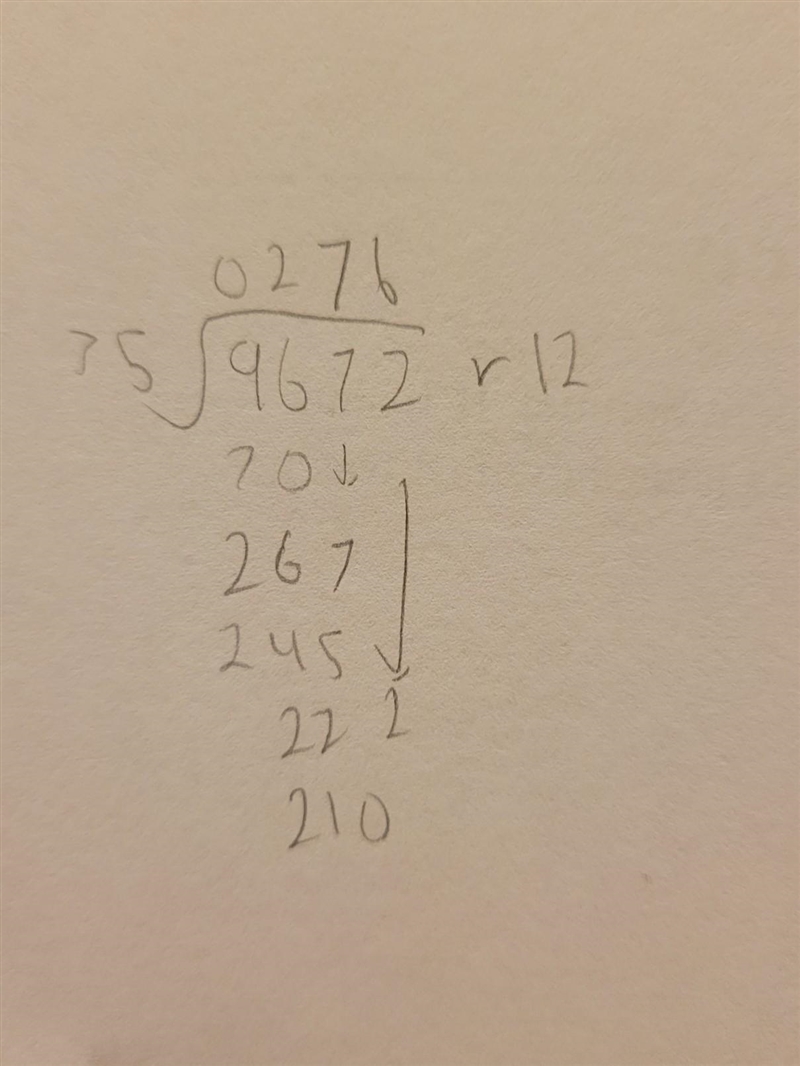 0276
35 9672 r12
70
267
245
222
210